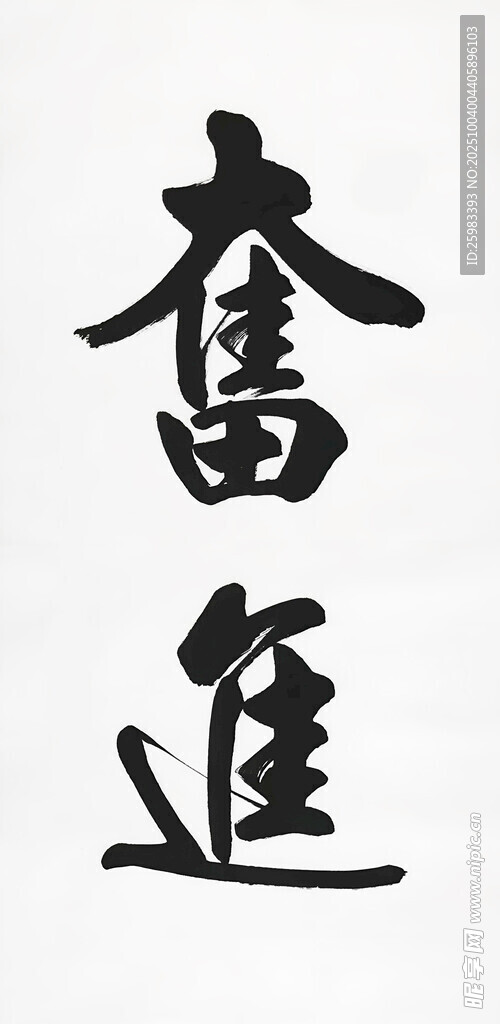 奮
進
ID:25983393 NO:20251004004405896103
昵享网 www.nipic.cn